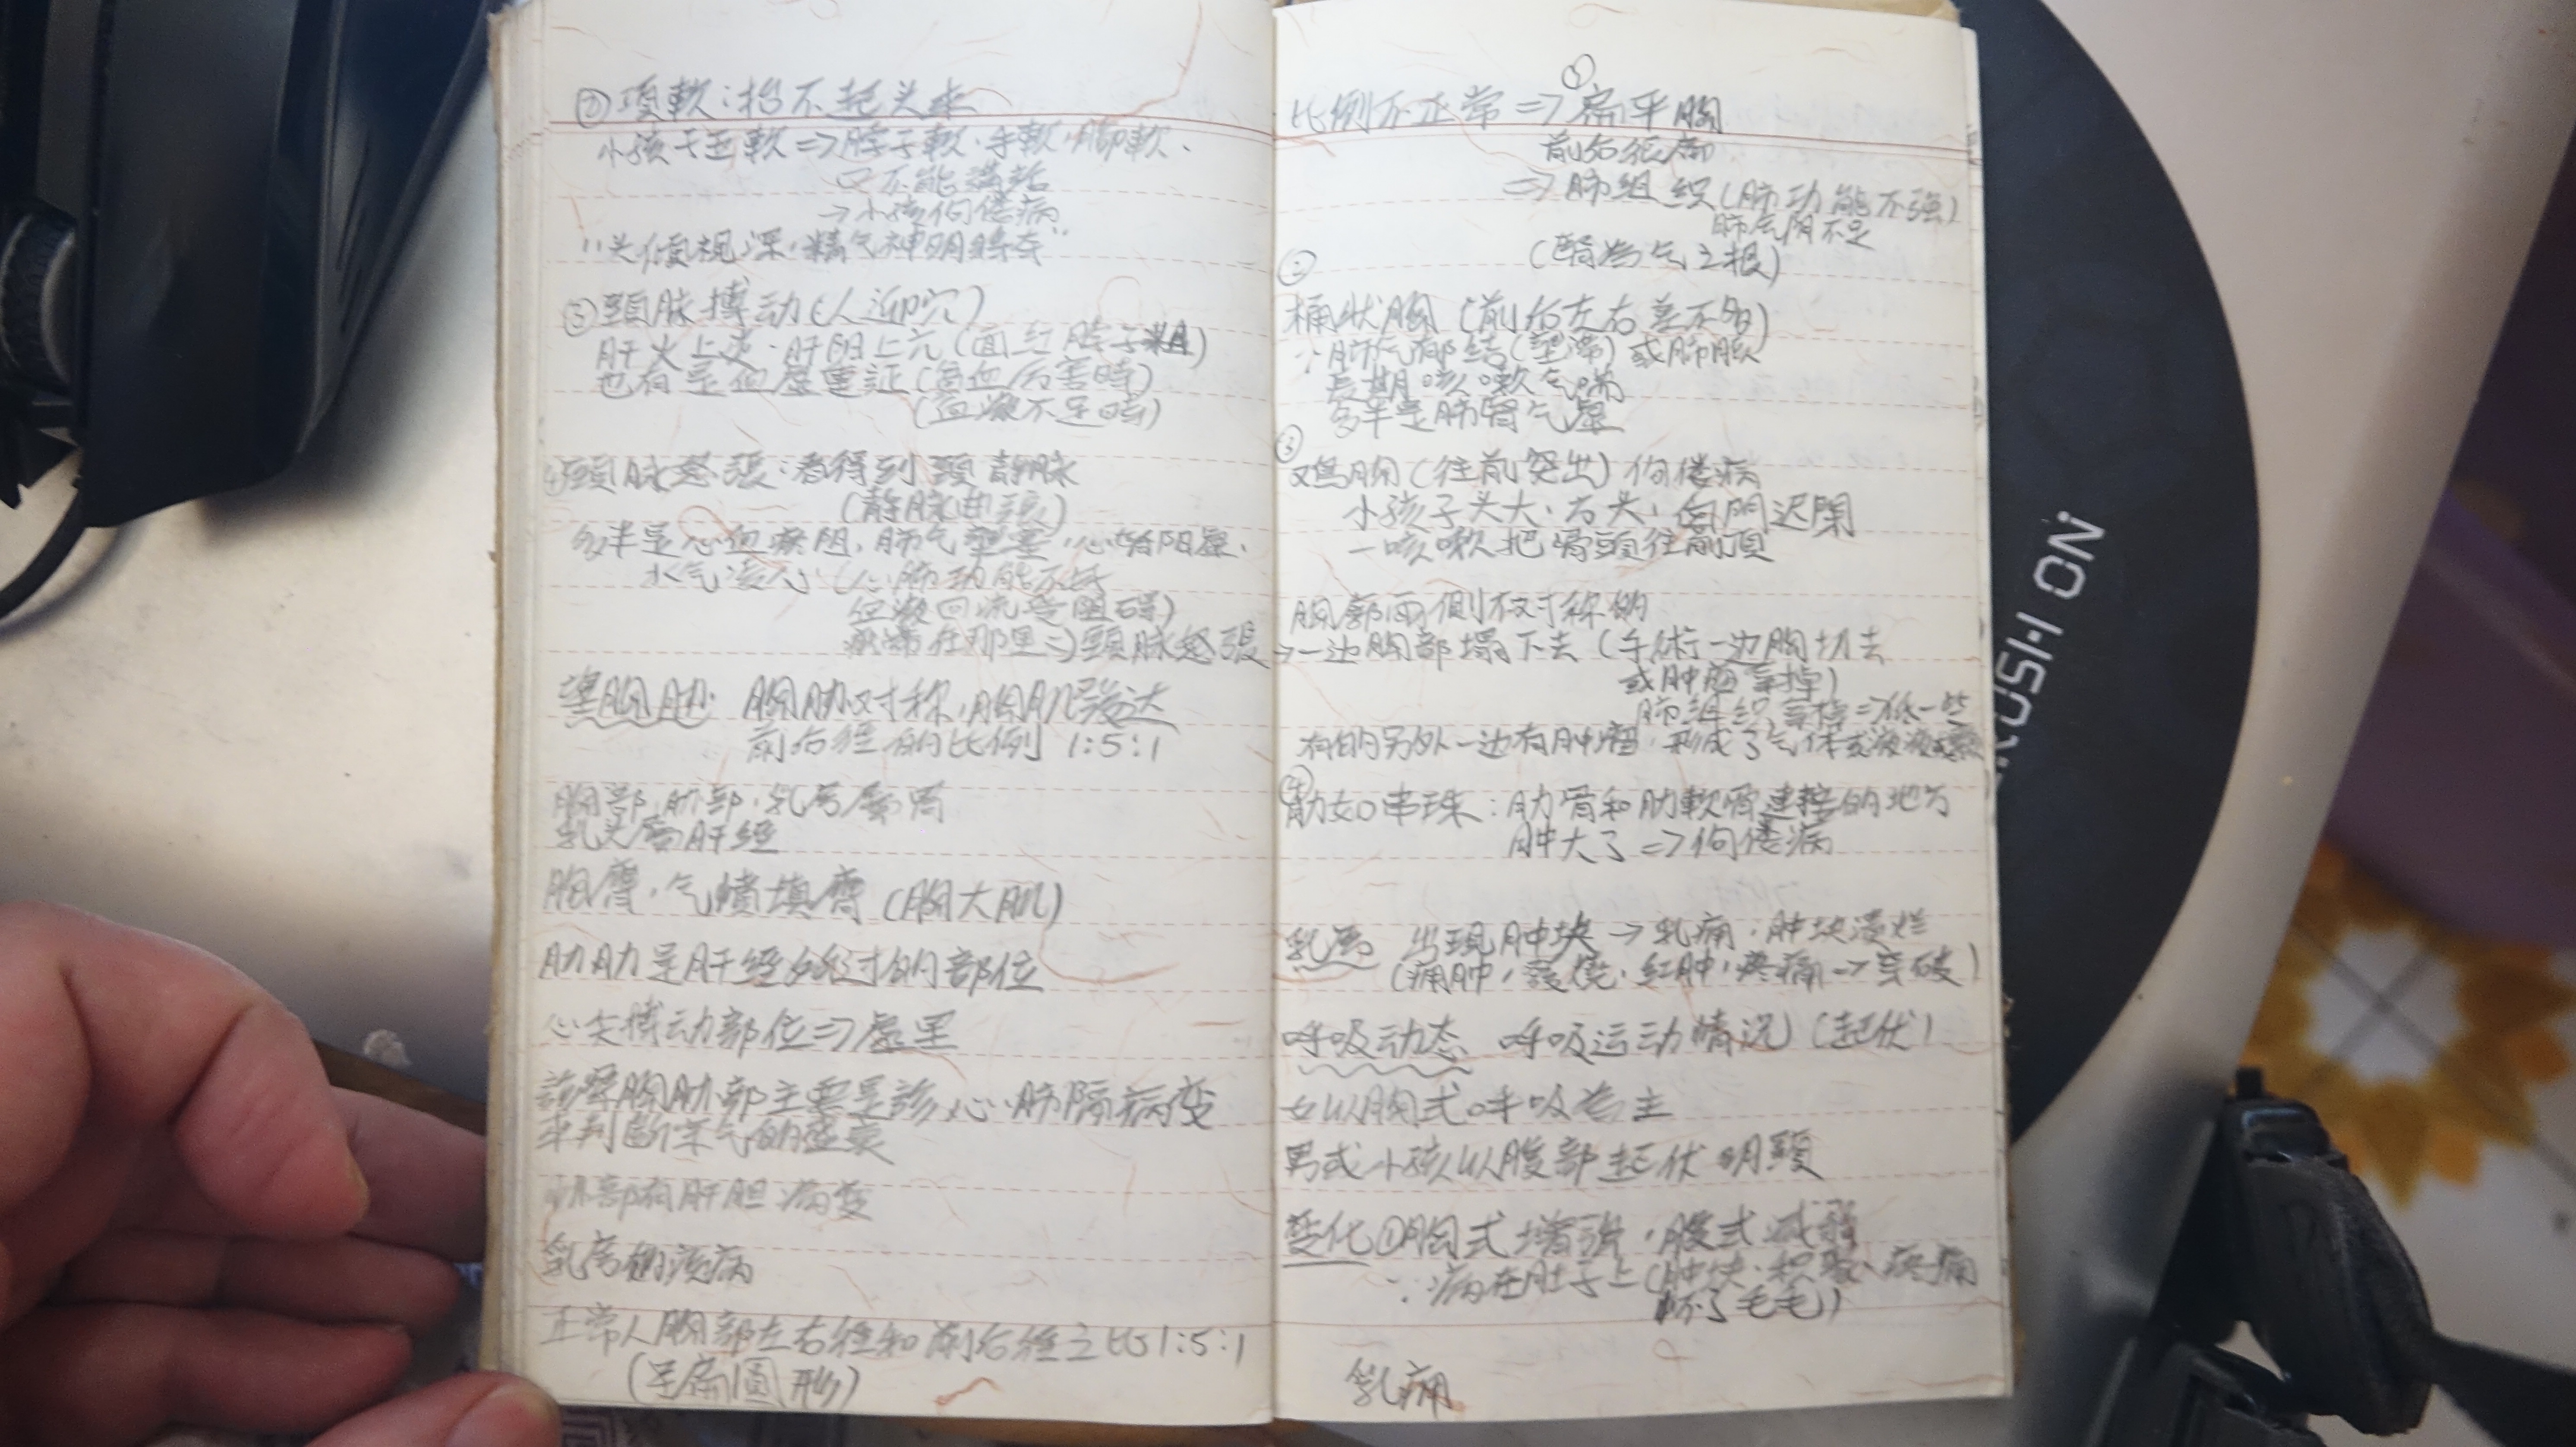 ②項軟：抬不起头来
小孩子五軟⇒脖子軟·手軟·脚軟·
口不能講話
→小孩佝偻病
"头倾視深·精气神明將奪"
③頸脉搏动(人迎穴)
肝火上炎·肝阳上亢(面红脖子粗)
也有是血虛重証(貧血厉害時)
(血液不足時)
④頸脉怒張：看得到頸静脉
(静脉曲張)
多半是心血瘀阻，肺气壅塞·心腎阳虛·
水气凌心(心肺功能不好
血液回流受阻碍)
瘀滞在那里⇒頸脉怒張
望胸肋 胸肋对称，胸肌發达
前后徑的比例 1:5:1
胸部·肋部·乳房屬胃
乳头屬肝經
胸膺·气憤填膺(胸大肌)
肋肋是肝經经过的部位
心尖搏动部位⇒虛里
診察胸肋部主要是診心·肺隔病变
来判断宗气的盛衰
肋部有肝胆病变
乳房的疾病
正常人胸部左右徑和前后徑之比1:5:1
(呈扁圓形)
①
比例不正常⇒扁平胸
前后徑扁
⇒肺组织(肺功能不強)
肺气阴不足
(腎為气之根)
②
桶状胸(前后左右差不多)
∵肺气郁结(壅滞)或肺脹
長期咳嗽气喘
多半是肺腎气虛
③
鸡胸(往前突出)佝偻病
小孩子头大·方头·囟門迟閉
一咳嗽把骨頭往前頂
胸廓两側不对称的
→一边胸部塌下去(手術一边胸切去
或肿瘤拿掉)
肺组织拿掉⇒低一些
有的另外一边有肿瘤·形成了气体或液
④
肋如串珠：肋骨和肋軟骨連接的地方
肿大了⇒佝偻病
乳房 出現肿块→乳痛·肿块溃烂
(痛肿，發烧·红肿，疼痛→穿破)
呼吸动态 呼吸运动情况(起伏)
女以胸式呼吸為主
男或小孩以腹部起伏明顯
变化①胸式增強·腹式減弱
∵病在肚子上(肿块·积液·疼痛
怀了毛毛)
乳痈
CRUSH ON